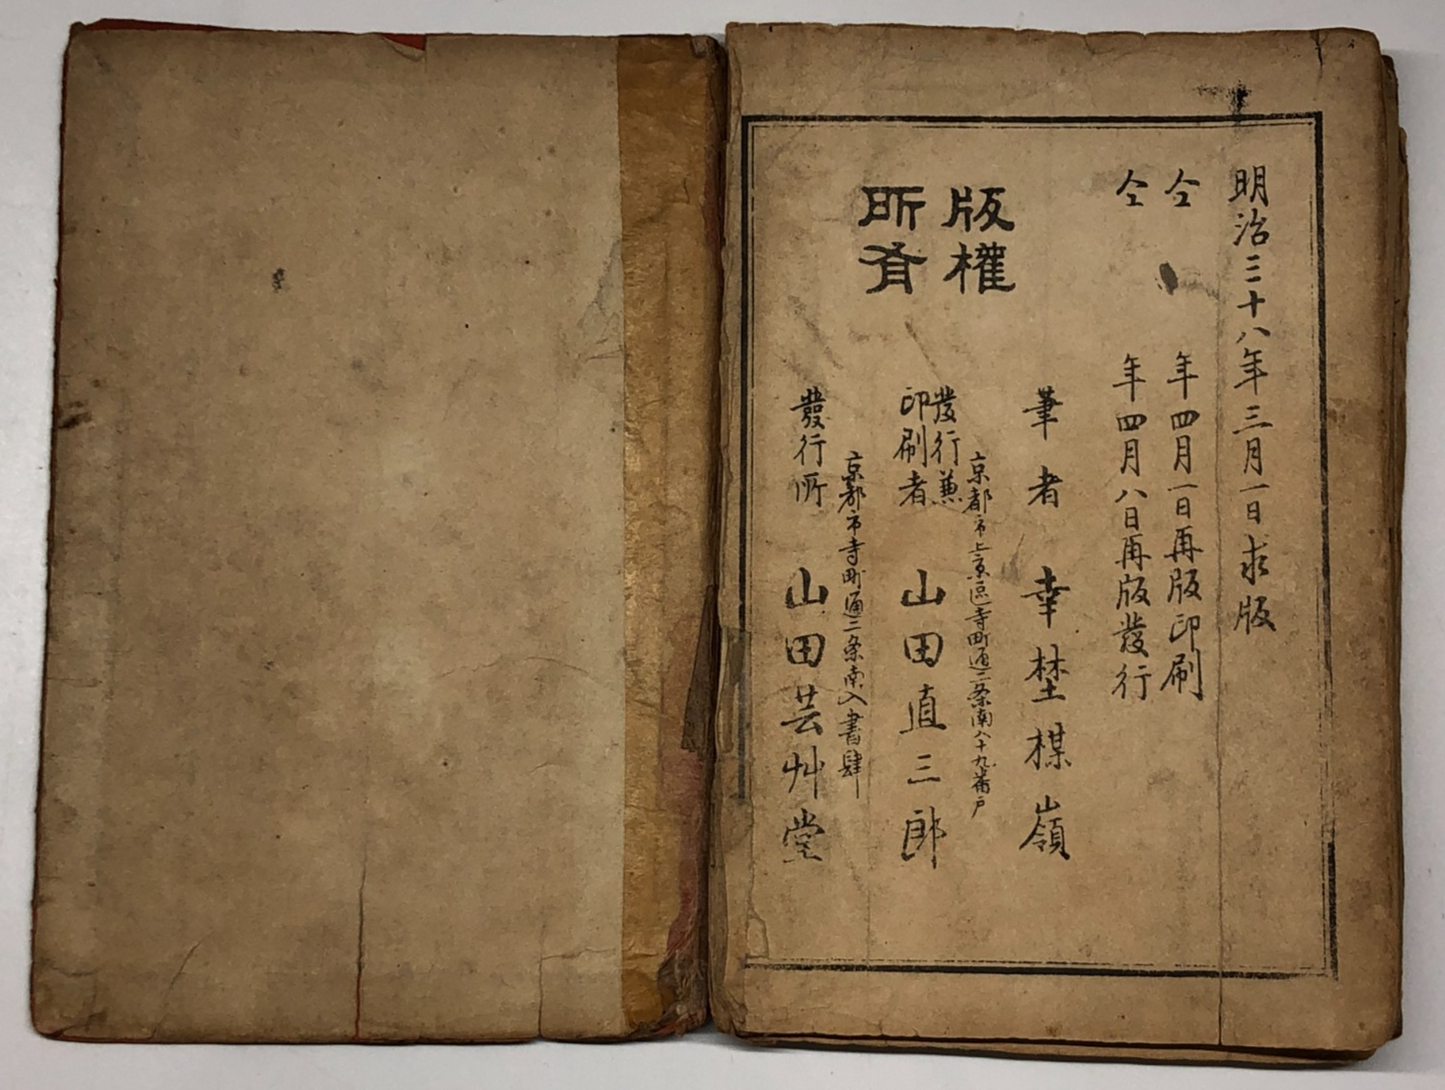 明治三十八年三月一日求版
仝 年四月一日再版印刷
仝 年四月八日再版發行
版權
所有
筆者 幸埜楳嶺
京都市上京區寺町通二条南入十九番戸
發行兼
印刷者 山田直三郎
京都市寺町通二条南入書肆
發行所 山田芸艸堂